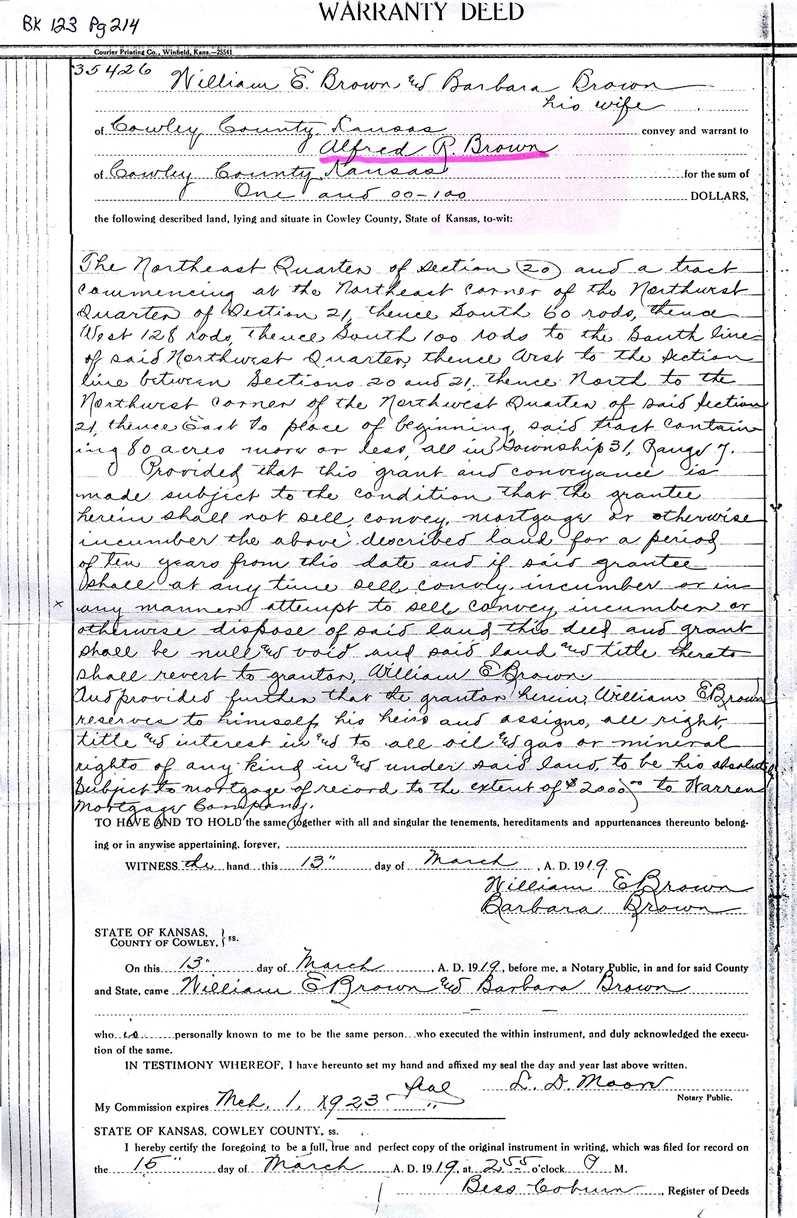 BK 123 Pg 214
WARRANTY DEED
Courier Printing Co., Winfield, Kans.—25541
35426 William E. Brown and Barbara Brown
his wife
of Cowley County, Kansas convey and warrant to
Alfred R. Brown
of Cowley County, Kansas for the sum of
One and 00-100 DOLLARS,
the following described land, lying and situate in Cowley County, State of Kansas, to-wit:
The Northeast Quarter of Section (20) and a tract
commencing at the Northeast corner of the Northwest
Quarter of Section 21, thence South 60 rods, thence
West 128 rods, thence South 100 rods to the South line
of said Northwest Quarter, thence West to the Section
line between Sections 20 and 21, thence North to the
Northwest corner of the Northwest Quarter of said Section
21, thence East to place of beginning, said tract contain
ing 80 acres more or less, all in Township 31, Range 7.
Provided that this grant and conveyance is
made subject to the condition that the grantee
herein shall not sell, convey, mortgage or otherwise
incumber the above described land for a period
of ten years from this date and if said grantee
shall at any time sell, convey, incumber or in
x any manner attempt to sell, convey, incumber or
otherwise dispose of said land this deed and grant
shall be null and void and said land and title thereto
shall revert to grantor, William E Brown
And provided further that the grantor herein, William E Brown
reserves to himself, his heirs and assigns, all right,
title and interest in and to all oil and gas or mineral
rights of any kind in and under said land, to be his absolutely
Subject to mortgage of record to the extent of $2000 00 to Warren
Mortgage Company.
TO HAVE AND TO HOLD the same, together with all and singular the tenements, hereditaments and appurtenances thereunto belong-
ing or in anywise appertaining, forever,
WITNESS the hand this 13" day of March, A. D. 1919.
William E Brown
Barbara Brown
STATE OF KANSAS, } ss.
COUNTY OF COWLEY,
On this 13" day of March, A. D. 1919, before me, a Notary Public, in and for said County
and State, came William E Brown and Barbara Brown
who is personally known to me to be the same person who executed the within instrument, and duly acknowledged the execu-
tion of the same.
IN TESTIMONY WHEREOF, I have hereunto set my hand and affixed my seal the day and year last above written.
Seal L. D. Moore
My Commission expires Mch. 1, 1923 Notary Public.
STATE OF KANSAS, COWLEY COUNTY, ss.
I hereby certify the foregoing to be a full, true and perfect copy of the original instrument in writing, which was filed for record on
the 15" day of March A. D. 1919, at 2 55 o'clock P M.
Bess Coburn, Register of Deeds